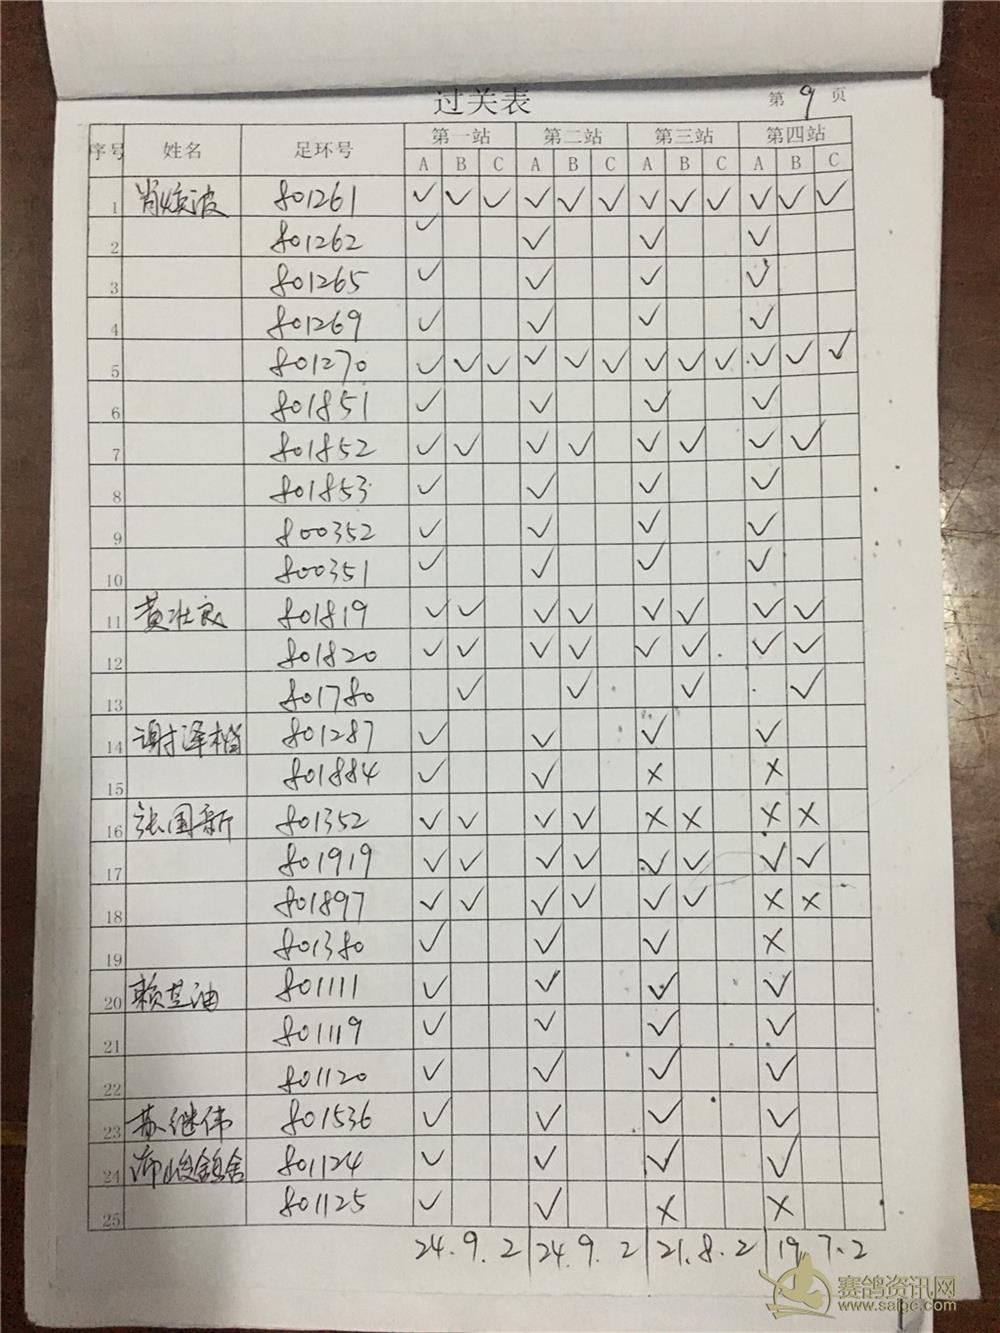 过关表
第 9 页
序号 姓名 足环号 第一站 第二站 第三站 第四站
A B C A B C A B C A B C
1 肖焕波 801261 ✓ ✓ ✓ ✓ ✓ ✓ ✓ ✓ ✓ ✓ ✓ ✓
2 801262 ✓ ✓ ✓ ✓
3 801265 ✓ ✓ ✓ ✓
4 801269 ✓ ✓ ✓ ✓
5 801270 ✓ ✓ ✓ ✓ ✓ ✓ ✓ ✓ ✓ ✓ ✓ ✓
6 801851 ✓ ✓ ✓ ✓
7 801852 ✓ ✓ ✓ ✓ ✓ ✓ ✓ ✓
8 801853 ✓ ✓ ✓ ✓
9 800352 ✓ ✓ ✓ ✓
10 800351 ✓ ✓ ✓ ✓
11 黄壮良 801819 ✓ ✓ ✓ ✓ ✓ ✓ ✓ ✓
12 801820 ✓ ✓ ✓ ✓ ✓ ✓ ✓ ✓
13 801780 ✓ ✓ ✓ ✓
14 谢泽楷 801287 ✓ ✓ ✓ ✓
15 801884 ✓ ✓ × ×
16 张国新 801352 ✓ ✓ ✓ ✓ × × × ×
17 801919 ✓ ✓ ✓ ✓ ✓ ✓ ✓ ✓
18 801897 ✓ ✓ ✓ ✓ ✓ ✓ × ×
19 801380 ✓ ✓ ✓ ×
20 赖芝油 801111 ✓ ✓ ✓ ✓
21 801119 ✓ ✓ ✓ ✓
22 801120 ✓ ✓ ✓ ✓
23 苏继伟 801536 ✓ ✓ ✓ ✓
24 801124 ✓ ✓ ✓ ✓
25 801125 ✓ ✓ × ×
24.9.2 24.9.2 21.8.2 19.7.2
赛鸽资讯网
www.saigc.com